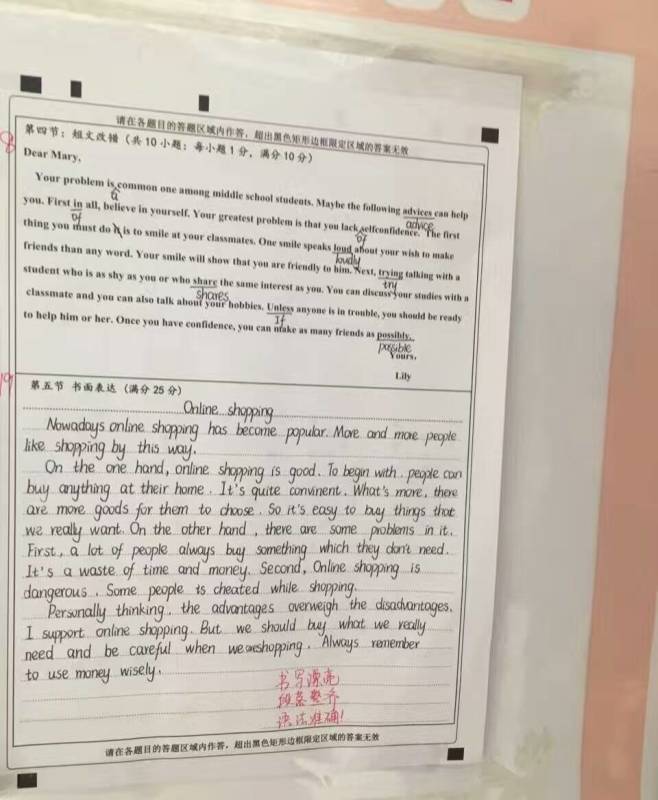 请在各题目的答题区域内作答，超出黑色矩形边框限定区域的答案无效
8
第四节：短文改错（共10小题；每小题1分，满分10分）
Dear Mary,
Your problem is common one among middle school students. Maybe the following advices can help
a
advice
you. First in all, believe in yourself. Your greatest problem is that you lack selfconfidence. The first
of
of
thing you must do it is to smile at your classmates. One smile speaks loud about your wish to make
loudly
friends than any word. Your smile will show that you are friendly to him. Next, trying talking with a
try
student who is as shy as you or who share the same interest as you. You can discuss your studies with a
shares
classmate and you can also talk about your hobbies. Unless anyone is in trouble, you should be ready
If
to help him or her. Once you have confidence, you can make as many friends as possibly.
possible
Yours,
Lily
19
第五节 书面表达（满分25分）
Online shopping
Nowadays online shopping has become popular. More and more people
like shopping by this way.
On the one hand, online shopping is good. To begin with, people can
buy anything at their home. It's quite convinent. What's more, there
are more goods for them to choose. So it's easy to buy things that
we really want. On the other hand, there are some problems in it.
First, a lot of people always buy something which they don't need.
It's a waste of time and money. Second, Online shopping is
dangerous. Some people is cheated while shopping.
Personally thinking, the advantages overweigh the disadvantages.
I support online shopping. But we should buy what we really
need and be careful when we are shopping. Always remember
to use money wisely.
书写漂亮
段落整齐
语法准确!
请在各题目的答题区域内作答，超出黑色矩形边框限定区域的答案无效